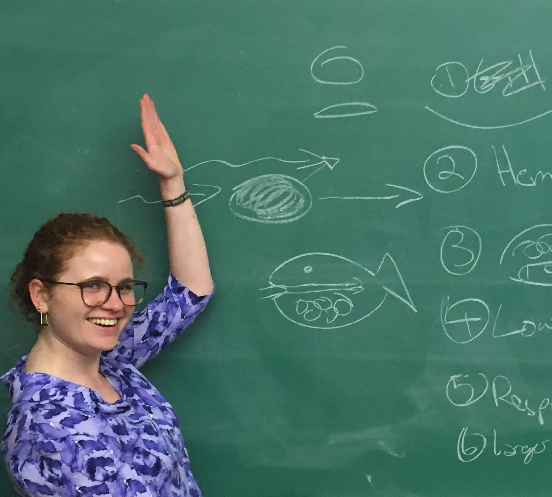 ①
② Hem
③
④ Low
⑤ Resp
⑥ larger